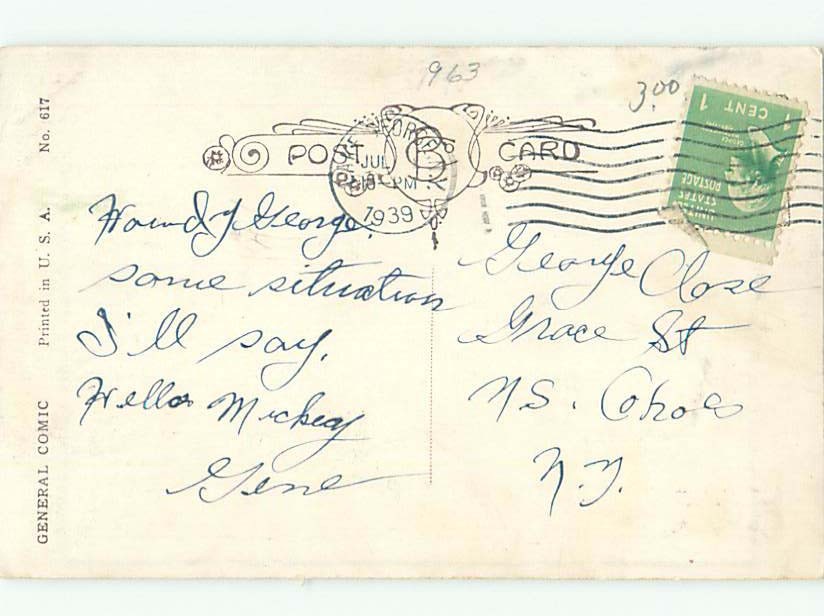 963
3.00
POST CARD
LAKE GEORGE, N.Y.
JUL
PM
1939
1 CENT 1
UNITED STATES POSTAGE
Howdy George.
some situation
I'll say.
Hello Mickey
Gene
George Close
Grace St
N S. Cohoes
N.Y.
GENERAL COMIC Printed in U. S. A. No. 617